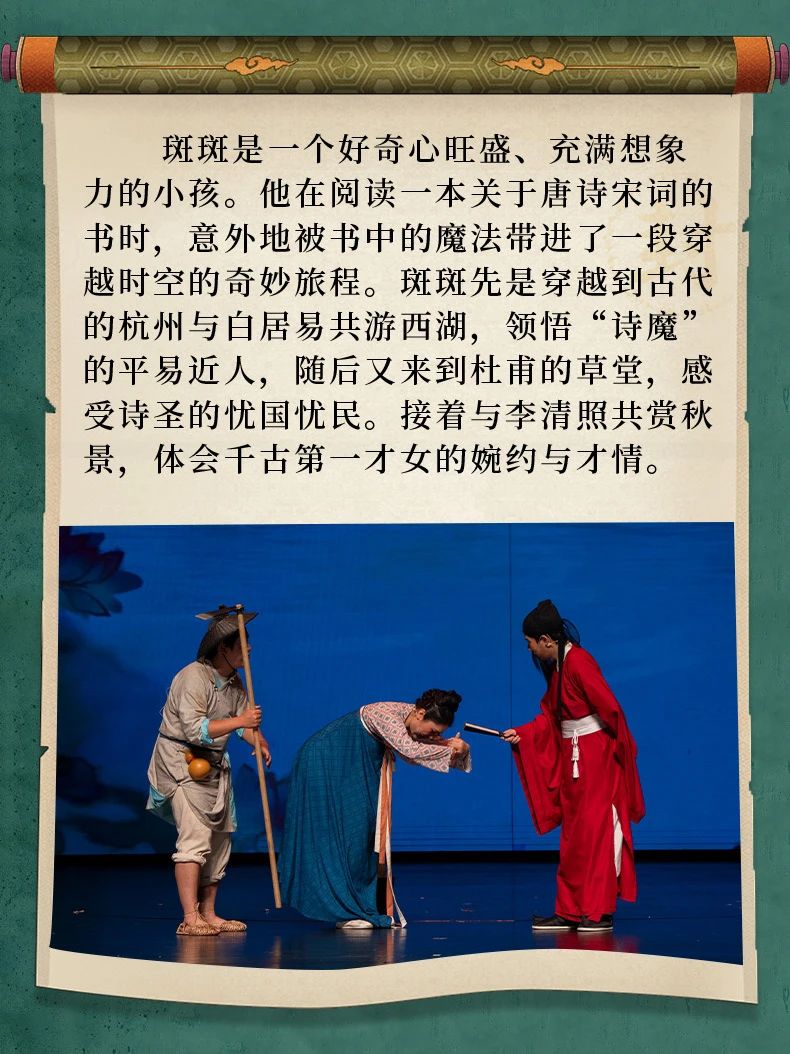 斑斑是一个好奇心旺盛、充满想象
力的小孩。他在阅读一本关于唐诗宋词的
书时，意外地被书中的魔法带进了一段穿
越时空的奇妙旅程。斑斑先是穿越到古代
的杭州与白居易共游西湖，领悟“诗魔”
的平易近人，随后又来到杜甫的草堂，感
受诗圣的忧国忧民。接着与李清照共赏秋
景，体会千古第一才女的婉约与才情。